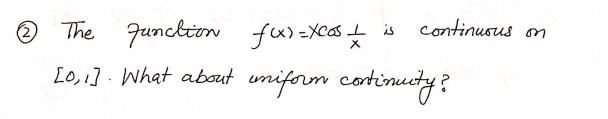 ② The function f(x) = x cos 1/x is continuous on
[0,1]. What about uniform continuity?